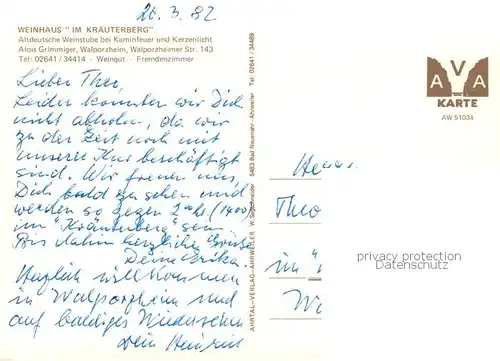 20. 3. 82
WEINHAUS "IM KRÄUTERBERG"
Altdeutsche Weinstube bei Kaminfeuer und Kerzenlicht
Alois Grimmiger, Walporzheim, Walporzheimer Str. 143
Tel: 02641 / 34414 - Weingut - Fremdenzimmer
Lieber Theo,
Leider konnten wir Dich
nicht abholen, da wir
zu der Zeit noch mit
unserer Kur beschäftigt
sind. Wir freuen uns,
Dich bald zu sehen und
werden so gegen 2 Uhr (14°°)
im "Kräuterberg" sein
Bis dahin herzliche Grüße
Deine Erika.
Herzlich willkommen
in Walporzheim und
auf baldiges Wiedersehen
Dein Heinrich
AHRTAL-VERLAG-AHRWEILER W. 5483 Bad Neuenahr - Ahrweiler Tel. 02641 / 34489
AVA
KARTE
AW 51034
Herrn
Theo
im "
privacy protection
Datenschutz